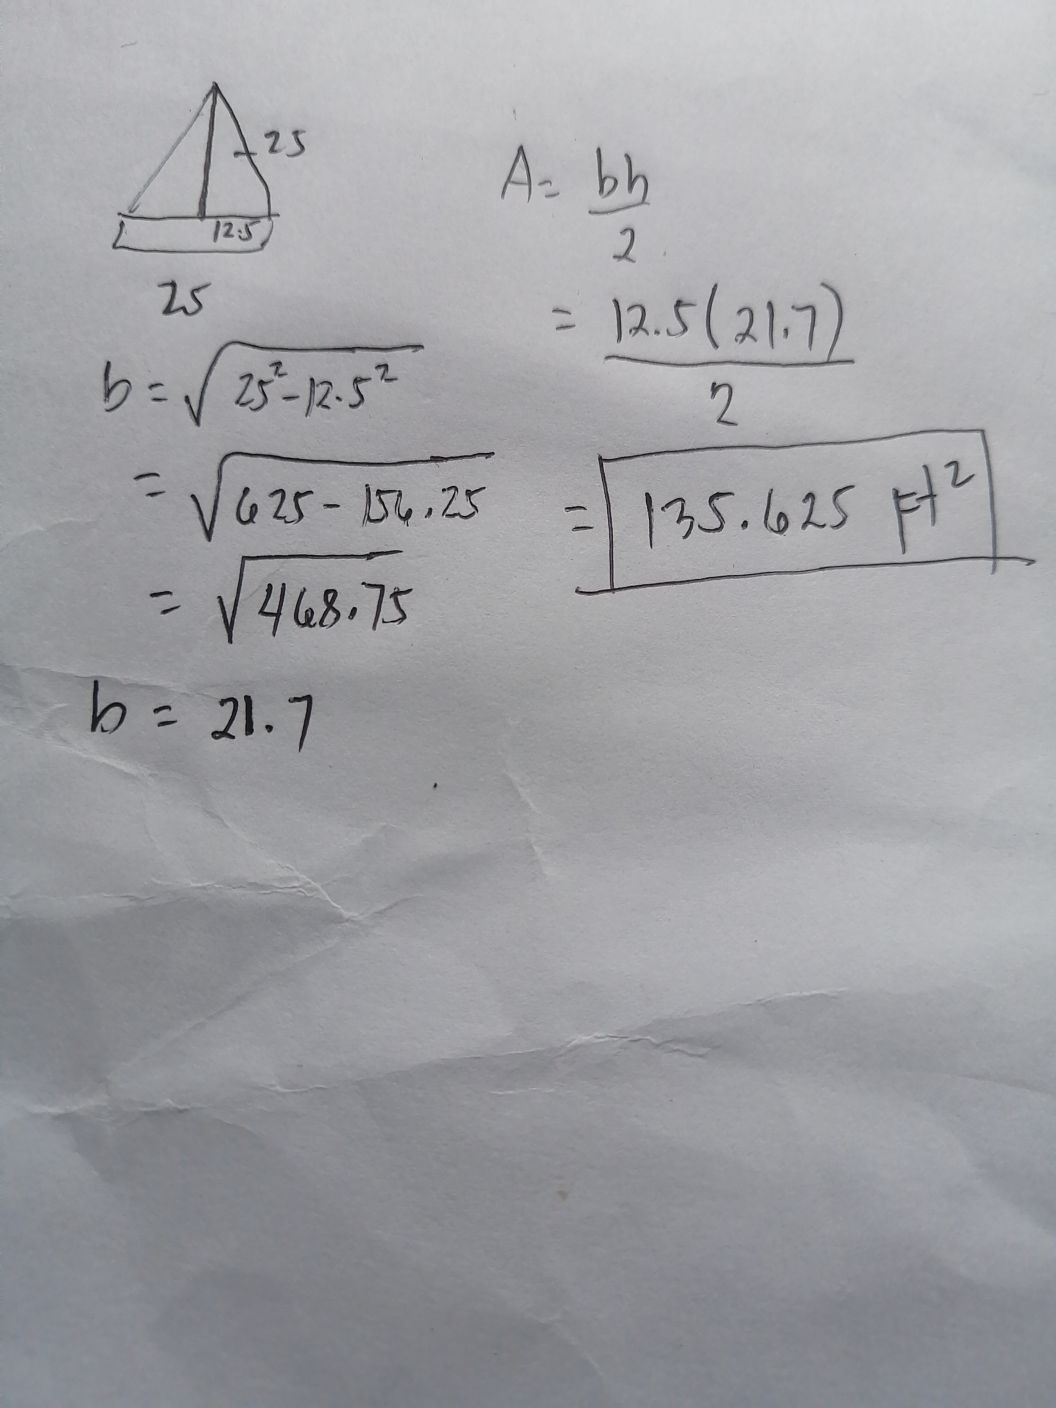 25
12.5
25
b = √25²-12.5²
= √625 - 156.25
= √468.75
b = 21.7
A = bh
2
= 12.5(21.7)
2
= 135.625 Ft²